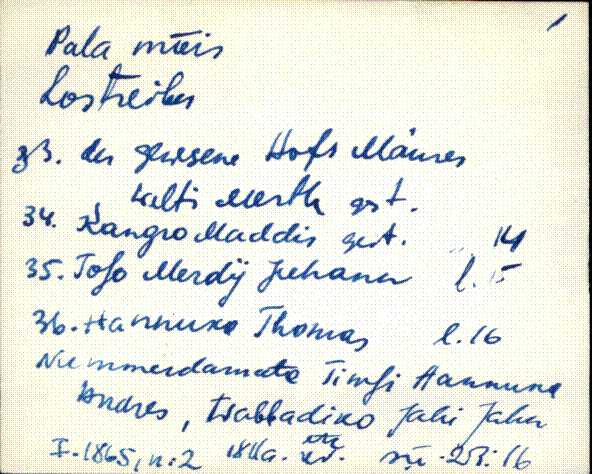 Pala mõis
Lostreiber
33. der gewesene Hofs Mäurer
Walti Merth gest.
34. Kangro Maddis gest. 14
35. Toso Merdij Juhann l. 15
36. Hannuxe Thomas l. 16
Nummerdamata Timsi Hannuxe
Andres, Jahn
I. 1865, n: 2 1811a. 16